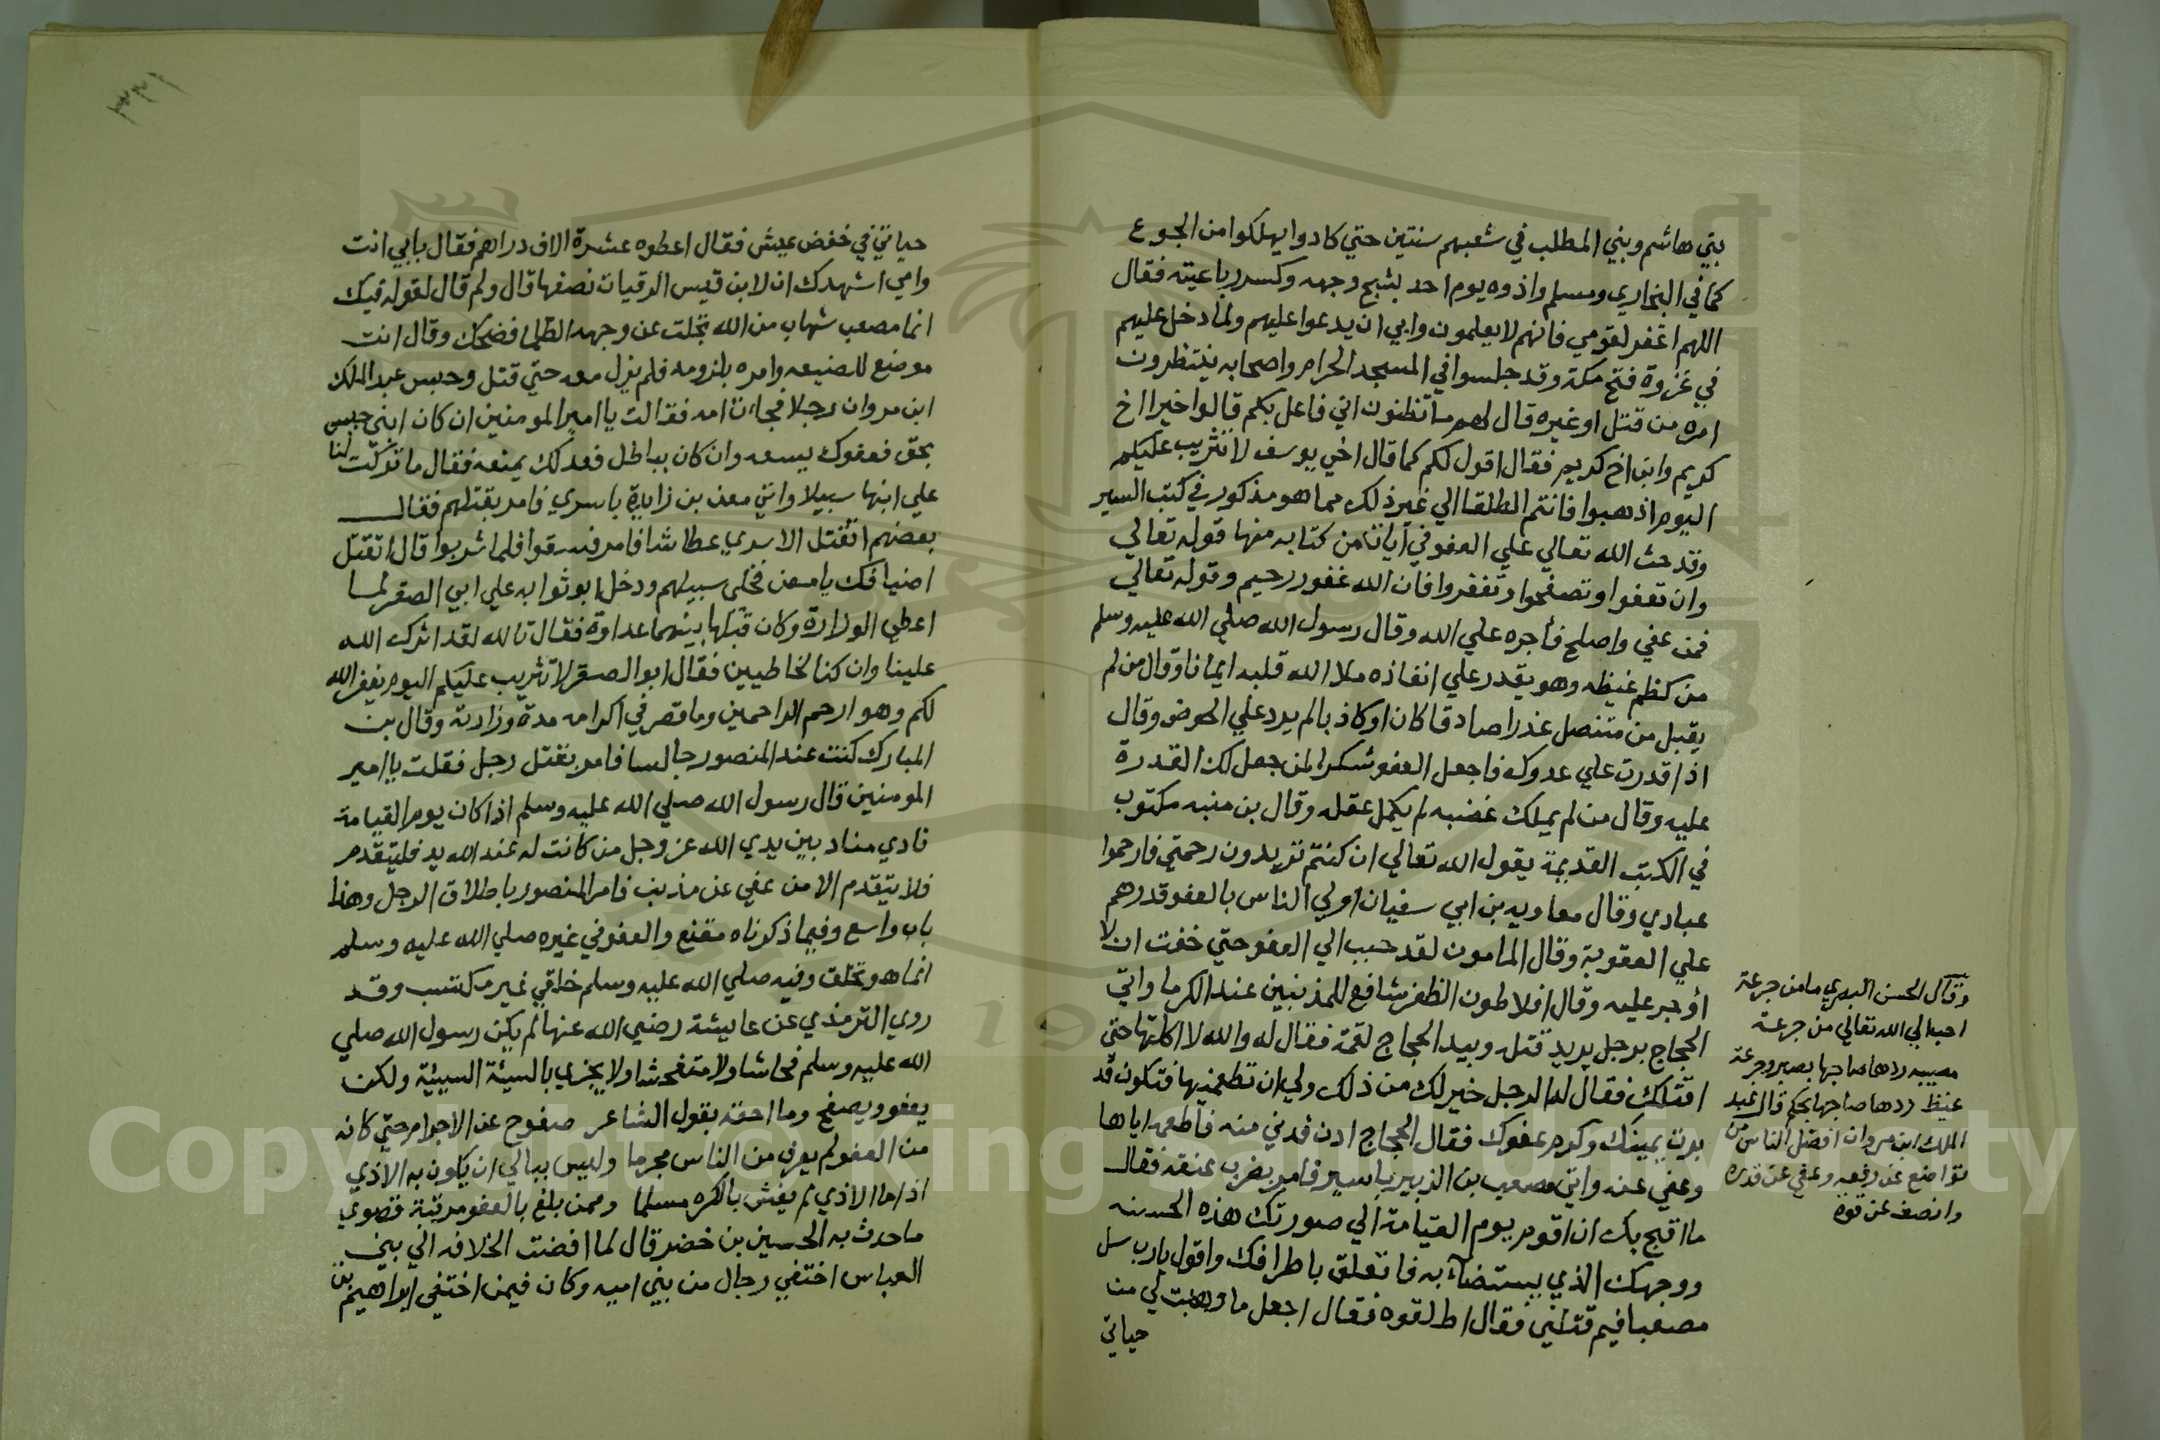 بني هاشم وبني المطلب في شعبهم سنتين حتي كادوا يهلكوا من الجوع
كما في البخاري ومسلم واذوه يوم احد بشج وجهه وكسر رباعيته فقال
اللهم اغفر لقومي فانهم لا يعلمون وابي ان يدعوا عليهم ولما دخل عليهم
في غزوة فتح مكة وقد جلسوا في المسجد الحرام واصحابه ينتظرون
امره من قتل او غيره قال لهم ما تظنون اني فاعل بكم قالوا خيرا اخ
كريم وابن اخ كريم فقال اقول لكم كما قال اخي يوسف لا تثريب عليكم
اليوم اذهبوا فانتم الطلقا الي غير ذلك مما هو مذكور في كتب السير
وقد حث الله تعالي علي العفو في ايات من كتابه منها قوله تعالي
وان تعفوا وتصفحوا وتغفروا فان الله غفور رحيم وقوله تعالي
فمن عفي واصلح فأجره علي الله وقال رسول الله صلي الله عليه وسلم
من كظم غيظه وهو يقدر علي انفاذه ملا الله قلبه ايمانا وقال من لم
يقبل من متنصل عذرا صادقا كان او كاذبا لم يرد علي الحوض وقال
اذا قدرت علي عدوك فاجعل العفو شكرا لمن جعل لك القدرة
عليه وقال من لم يملك غضبه لم يكمل عقله وقال بن منبه مكتوب
في الكتب القديمة يقول الله تعالي ان كنتم تريدون رحمتي فارحموا
عبادي وقال معاويه بن ابي سفيان اولي الناس بالعفو قدرهم
علي العقوبة وقال المامون لقد حبب الي العفو حتي خفت ان لا
أوجر عليه وقال افلاطون الظفر شافع للمذنبين عند الكرما واتي
الحجاج برجل يريد قتله وبيد الحجاج لقمة فقال له والله لا اكلتها حتي
اقتلك فقال له الرجل خير لك من ذلك ولي ان تطعمنيها فتكون قد
بررت يمينك وكرم عفوك فقال الحجاج ادن فدني منه فاطعمه اياها
وعفي عنه واتي مصعب بن الزبير باسير فامر بضرب عنقه فقال
ما اقبح بك ان اقوم يوم القيامة الي صورتك هذه الحسنه
ووجهك الذي يستضاء به فاتعلق باطرافك واقول يارب سل
مصعبا فيم قتلني فقال اطلقوه فقال اجعل ما وهبت لي من
حياتي
وقال الحسن البصري ما من جرعة
احب الي الله تعالي من جرعة
مصيبه ردها صاحبها بصبر وجرعة
غيظ ردها صاحبها بحلم قال عبد
الملك ابن مروان افضل الناس من
تواضع عن رفعه وعفي عن قدره
وانصف عن قوة
حياتي في خفض عيش فقال اعطوه عشرة الاف دراهم فقال بابي انت
وامي اشهدك ان لابن قيس الرقيات نصفها قال ولم قال لقوله فيك
انما مصعب شهاب من الله تجلت عن وجهه الظلما فضحك وقال انت
موضع للصنيعه وامره بلزومه فلم يزل معه حتي قتل وحبس عبد الملك
ابن مروان رجلا فجاءت امه فقالت يا امير المومنين ان كان ابني حبس
بحق فعفوك يسعه وان كان بباطل فعدلك يمنعه فقال ما تركت لنا
علي ابنها سبيلا واتي معن بن زايدة باسري فامر بقتلهم فقال
بعضهم اتقتل الاسري عطاشا فامر فسقوا فلما شربوا قال اتقتل
اضيافك يا معن فخلي سبيلهم ودخل ابو ثوابه علي ابي الصقر لما
اعطي الوزارة وكان قبلها بينهما عداوة فقال تالله لقد اثرك الله
علينا وان كنا لخاطيين فقال ابو الصقر لا تثريب عليكم اليوم يغفر الله
لكم وهو ارحم الراحمين وما قصر في اكرامه مدة وزارته وقال بن
المبارك كنت عند المنصور جالسا فامر بقتل رجل فقلت يا امير
المومنين قال رسول الله صلي الله عليه وسلم اذا كان يوم القيامة
نادي مناد بين يدي الله عز وجل من كانت له عند الله يد فليتقدم
فلا يتقدم الا من عفي عن مذنب فامر المنصور باطلاق الرجل وهذا
باب واسع وفيما ذكرناه مقنع والعفو في غيره صلي الله عليه وسلم
انما هو تخلق وفيه صلي الله عليه وسلم خلقي غير مكتسب وقد
روي الترمذي عن عايشة رضي الله عنها لم يكن رسول الله صلي
الله عليه وسلم فحاشا ولا متفحشا ولا يجزي بالسيئة السيئة ولكن
يعفو ويصفح وما احقه بقول الشاعر صفوح عن الاجرام حتي كانه
من العفو لم يعرف من الناس مجرما وليس يبالي ان يكون به الاذي
اذا ما الاذي لم يغش بالكره مسلما وممن بلغ بالعفو مرتبة قصوي
ما حدث به الحسين بن خضر قال لما افضت الخلافه الي بني
العباس اختفي رجال من بني اميه وكان فيمن اختفي ابراهيم بن
Copyright © King Saud University